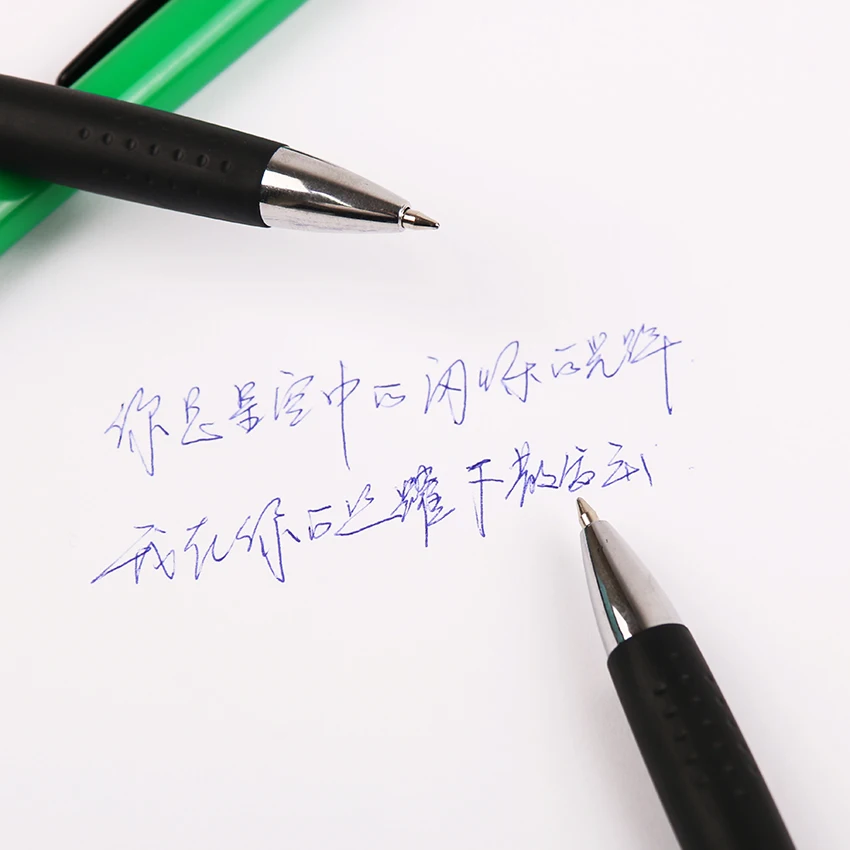 你是星空中的闪烁的光辉
我在你的耀下散